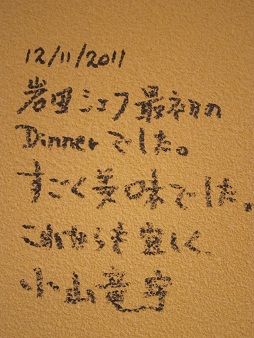 12/11/2011
岩田シェフ最初の
Dinnerでした。
すごく美味でした。
これからも宜しく
小山竜宇